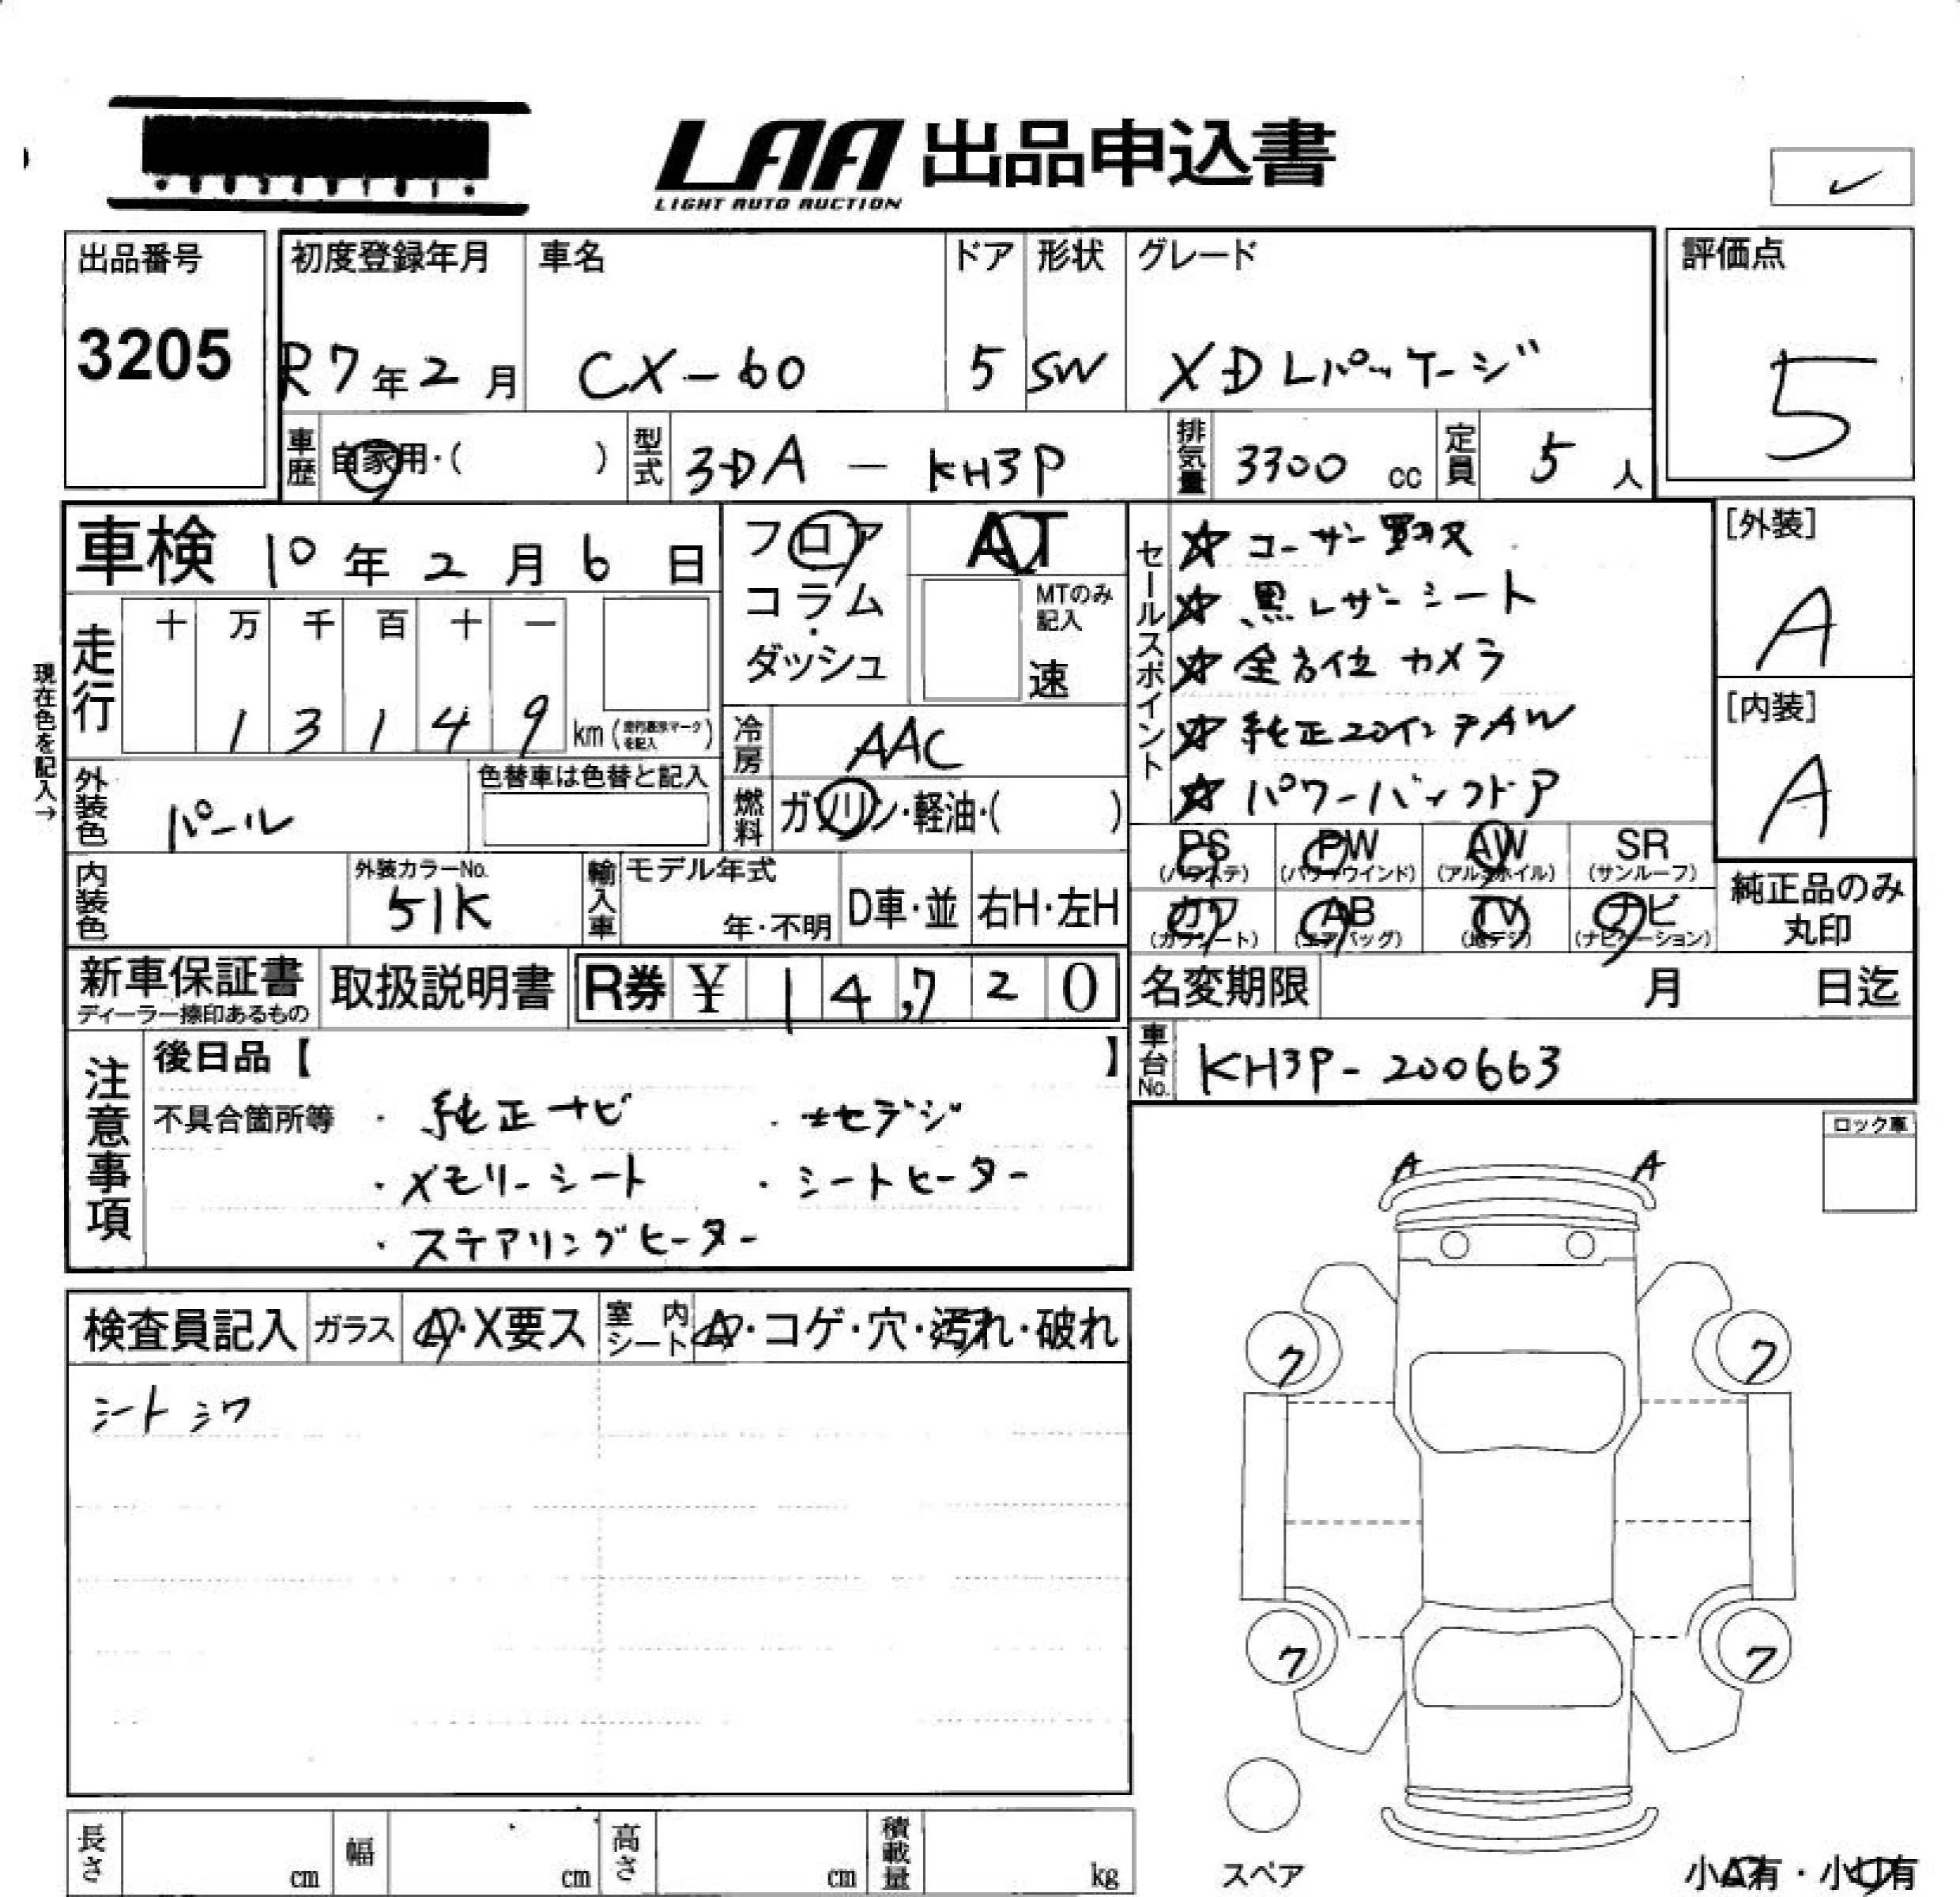 LAA 出品申込書
LIGHT AUTO AUCTION
出品番号
3205
初度登録年月
R7年2月
車名
CX-60
ドア
5
形状
SW
グレード
XD Lパッケージ
評価点
5
車歴
自家用・( )
型式
3DA - KH3P
排気量
3300 cc
定員
5 人
車検 10年2月6日
フロア
コラム・
ダッシュ
AT
MTのみ
記入
速
走行
十 万 千 百 十 一
1 3 1 4 9
km
現在色を記入→
冷房
AAC
外装色
パール
色替車は色替と記入
燃料
ガソリン・軽油・( )
内装色
外装カラーNo.
51K
輸入車
モデル年式
年・不明
D車・並
右H・左H
セールスポイント
☆ ユーザー買取
☆ 黒レザーシート
☆ 全方位カメラ
☆ 純正20インチAW
☆ パワーバックドア
[外装]
A
[内装]
A
PS
(パワステ)
PW
(パワーウインド)
AW
(アルミホイル)
SR
(サンルーフ)
カワ
(カワシート)
AB
(エアバッグ)
TV
(地デジ)
ナビ
(ナビゲーション)
純正品のみ
丸印
新車保証書
ディーラー捺印あるもの
取扱説明書
R券 ¥ 14,720
名変期限
月 日迄
車台No.
KH3P-200663
注意事項
後日品【 】
不具合箇所等
・純正ナビ
・地デジ
・メモリーシート
・シートヒーター
・ステアリングヒーター
ロック車
検査員記入
ガラス
A・X要ス
室内
シート
A・コゲ・穴・汚れ・破れ
シートシワ
A A
ク ク
ク ク
スペア
小A有・小U有
長さ
cm
幅
cm
高さ
cm
積載量
kg